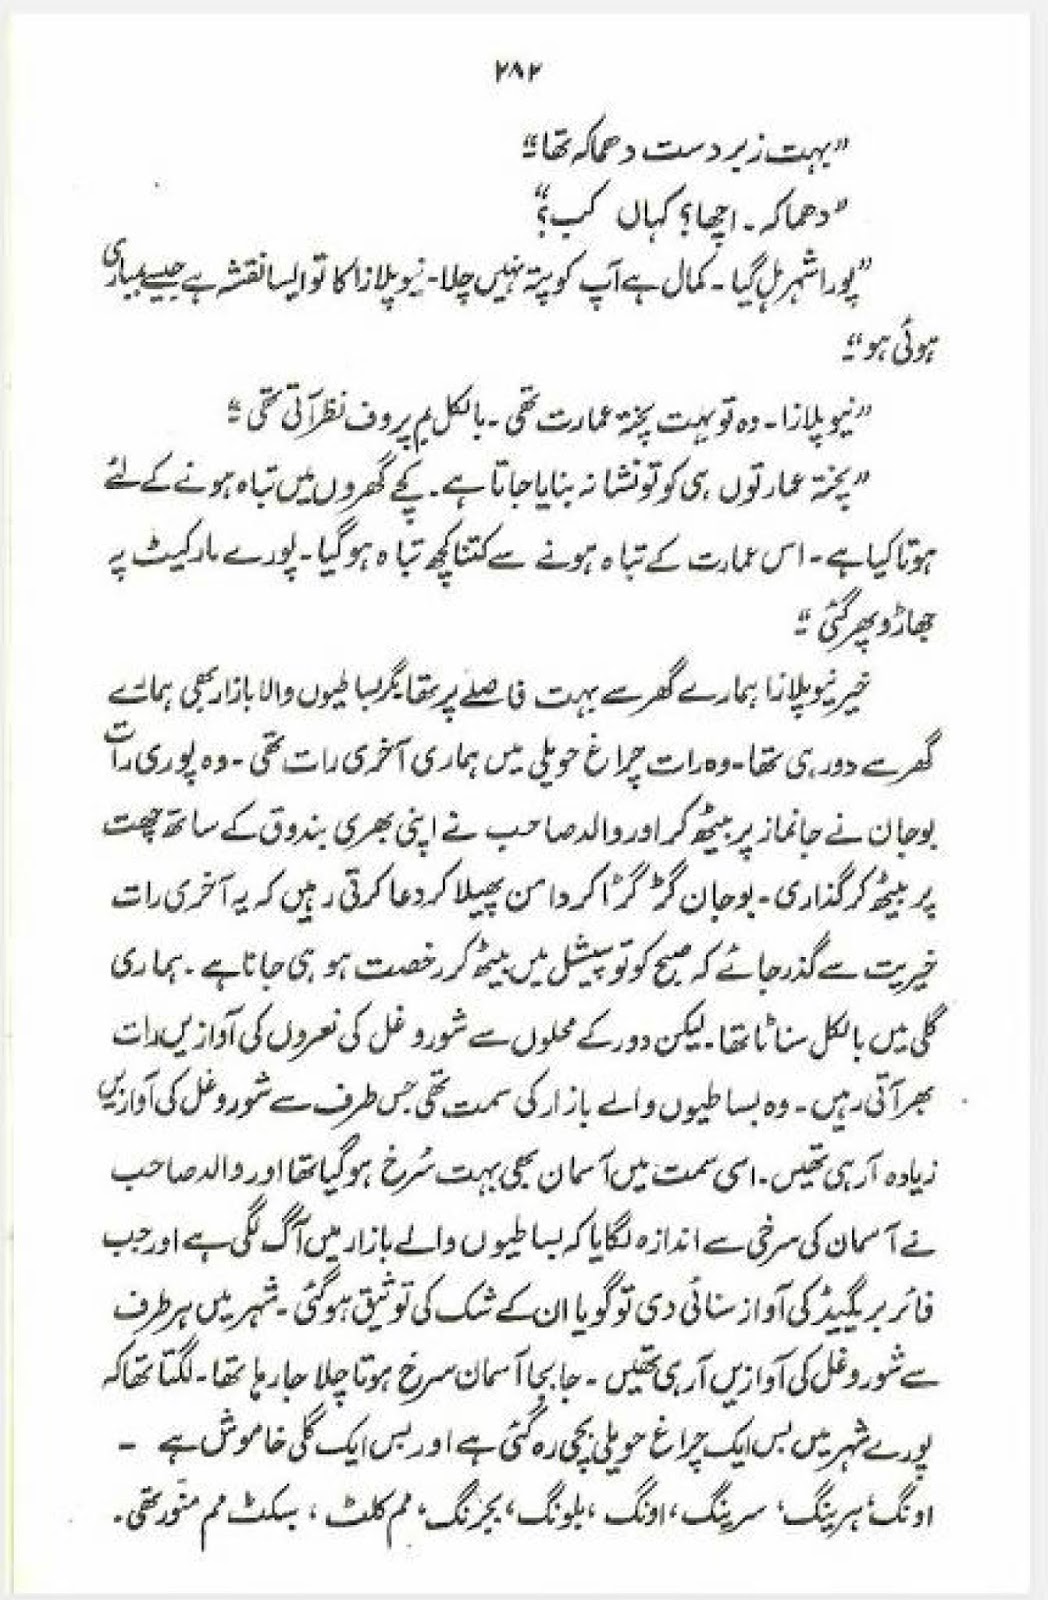 ۲۸۲
”بہت زبردست دھماکہ تھا۔“
”دھماکہ۔ اچھا؟ کہاں کب؟“
”پورا شہر ہل گیا۔ کمال ہے آپ کو پتہ نہیں چلا۔ نیو پلازا کا تو ایسا نقشہ ہے جیسے بمباری
ہوئی ہو۔“
”نیو پلازا۔ وہ تو بہت پختہ عمارت تھی۔ بالکل بم پروف نظر آتی تھی۔“
”پختہ عمارتوں ہی کو تو نشانہ بنایا جاتا ہے۔ کچے گھروں میں تباہ ہونے کے لئے
ہوتا کیا ہے۔ اس عمارت کے تباہ ہونے سے کتنا کچھ تباہ ہو گیا۔ پورے مارکیٹ پہ
جھاڑو پھر گئی۔“
خیر نیو پلازا ہمارے گھر سے بہت فاصلے پر تھا مگر بساطیوں والا بازار بھی ہمارے
گھر سے دور ہی تھا۔ وہ رات چراغ حویلی میں ہماری آخری رات تھی۔ وہ پوری رات
بوجان نے جانماز پر بیٹھ کر اور والد صاحب نے اپنی بھری بندوق کے ساتھ چھت
پر بیٹھ کر گذاری۔ بوجان گڑ گڑا کر دامن پھیلا کر دعا کرتی رہیں کہ یہ آخری رات
خیریت سے گذر جائے کہ صبح کو تو سپیشل میں بیٹھ کر رخصت ہو ہی جانا ہے۔ ہماری
گلی میں بالکل سناٹا تھا۔ لیکن دور کے محلوں سے شور و غل کی نعروں کی آوازیں رات
بھر آتی رہیں۔ وہ بساطیوں والے بازار کی سمت تھی جس طرف سے شور و غل کی آوازیں
زیادہ آرہی تھیں۔ اسی سمت میں آسمان بھی بہت سُرخ ہو گیا تھا اور والد صاحب
نے آسمان کی سرخی سے اندازہ لگایا کہ بساطیوں والے بازار میں آگ لگی ہے اور جب
فائر بریگیڈ کی آواز سنائی دی تو گویا ان کے شک کی توثیق ہو گئی۔ شہر میں ہر طرف
سے شور و غل کی آوازیں آرہی تھیں۔ جا بجا آسمان سرخ ہوتا چلا جا رہا تھا۔ لگتا تھا کہ
پورے شہر میں بس ایک چراغ حویلی بچی رہ گئی ہے اور بس ایک گلی خاموش ہے ۔
اونگ، ہرینگ، سرینگ، اونگ، بلونگ، بجرنگ، مم کلٹ، بسکٹ مم منور تھی۔